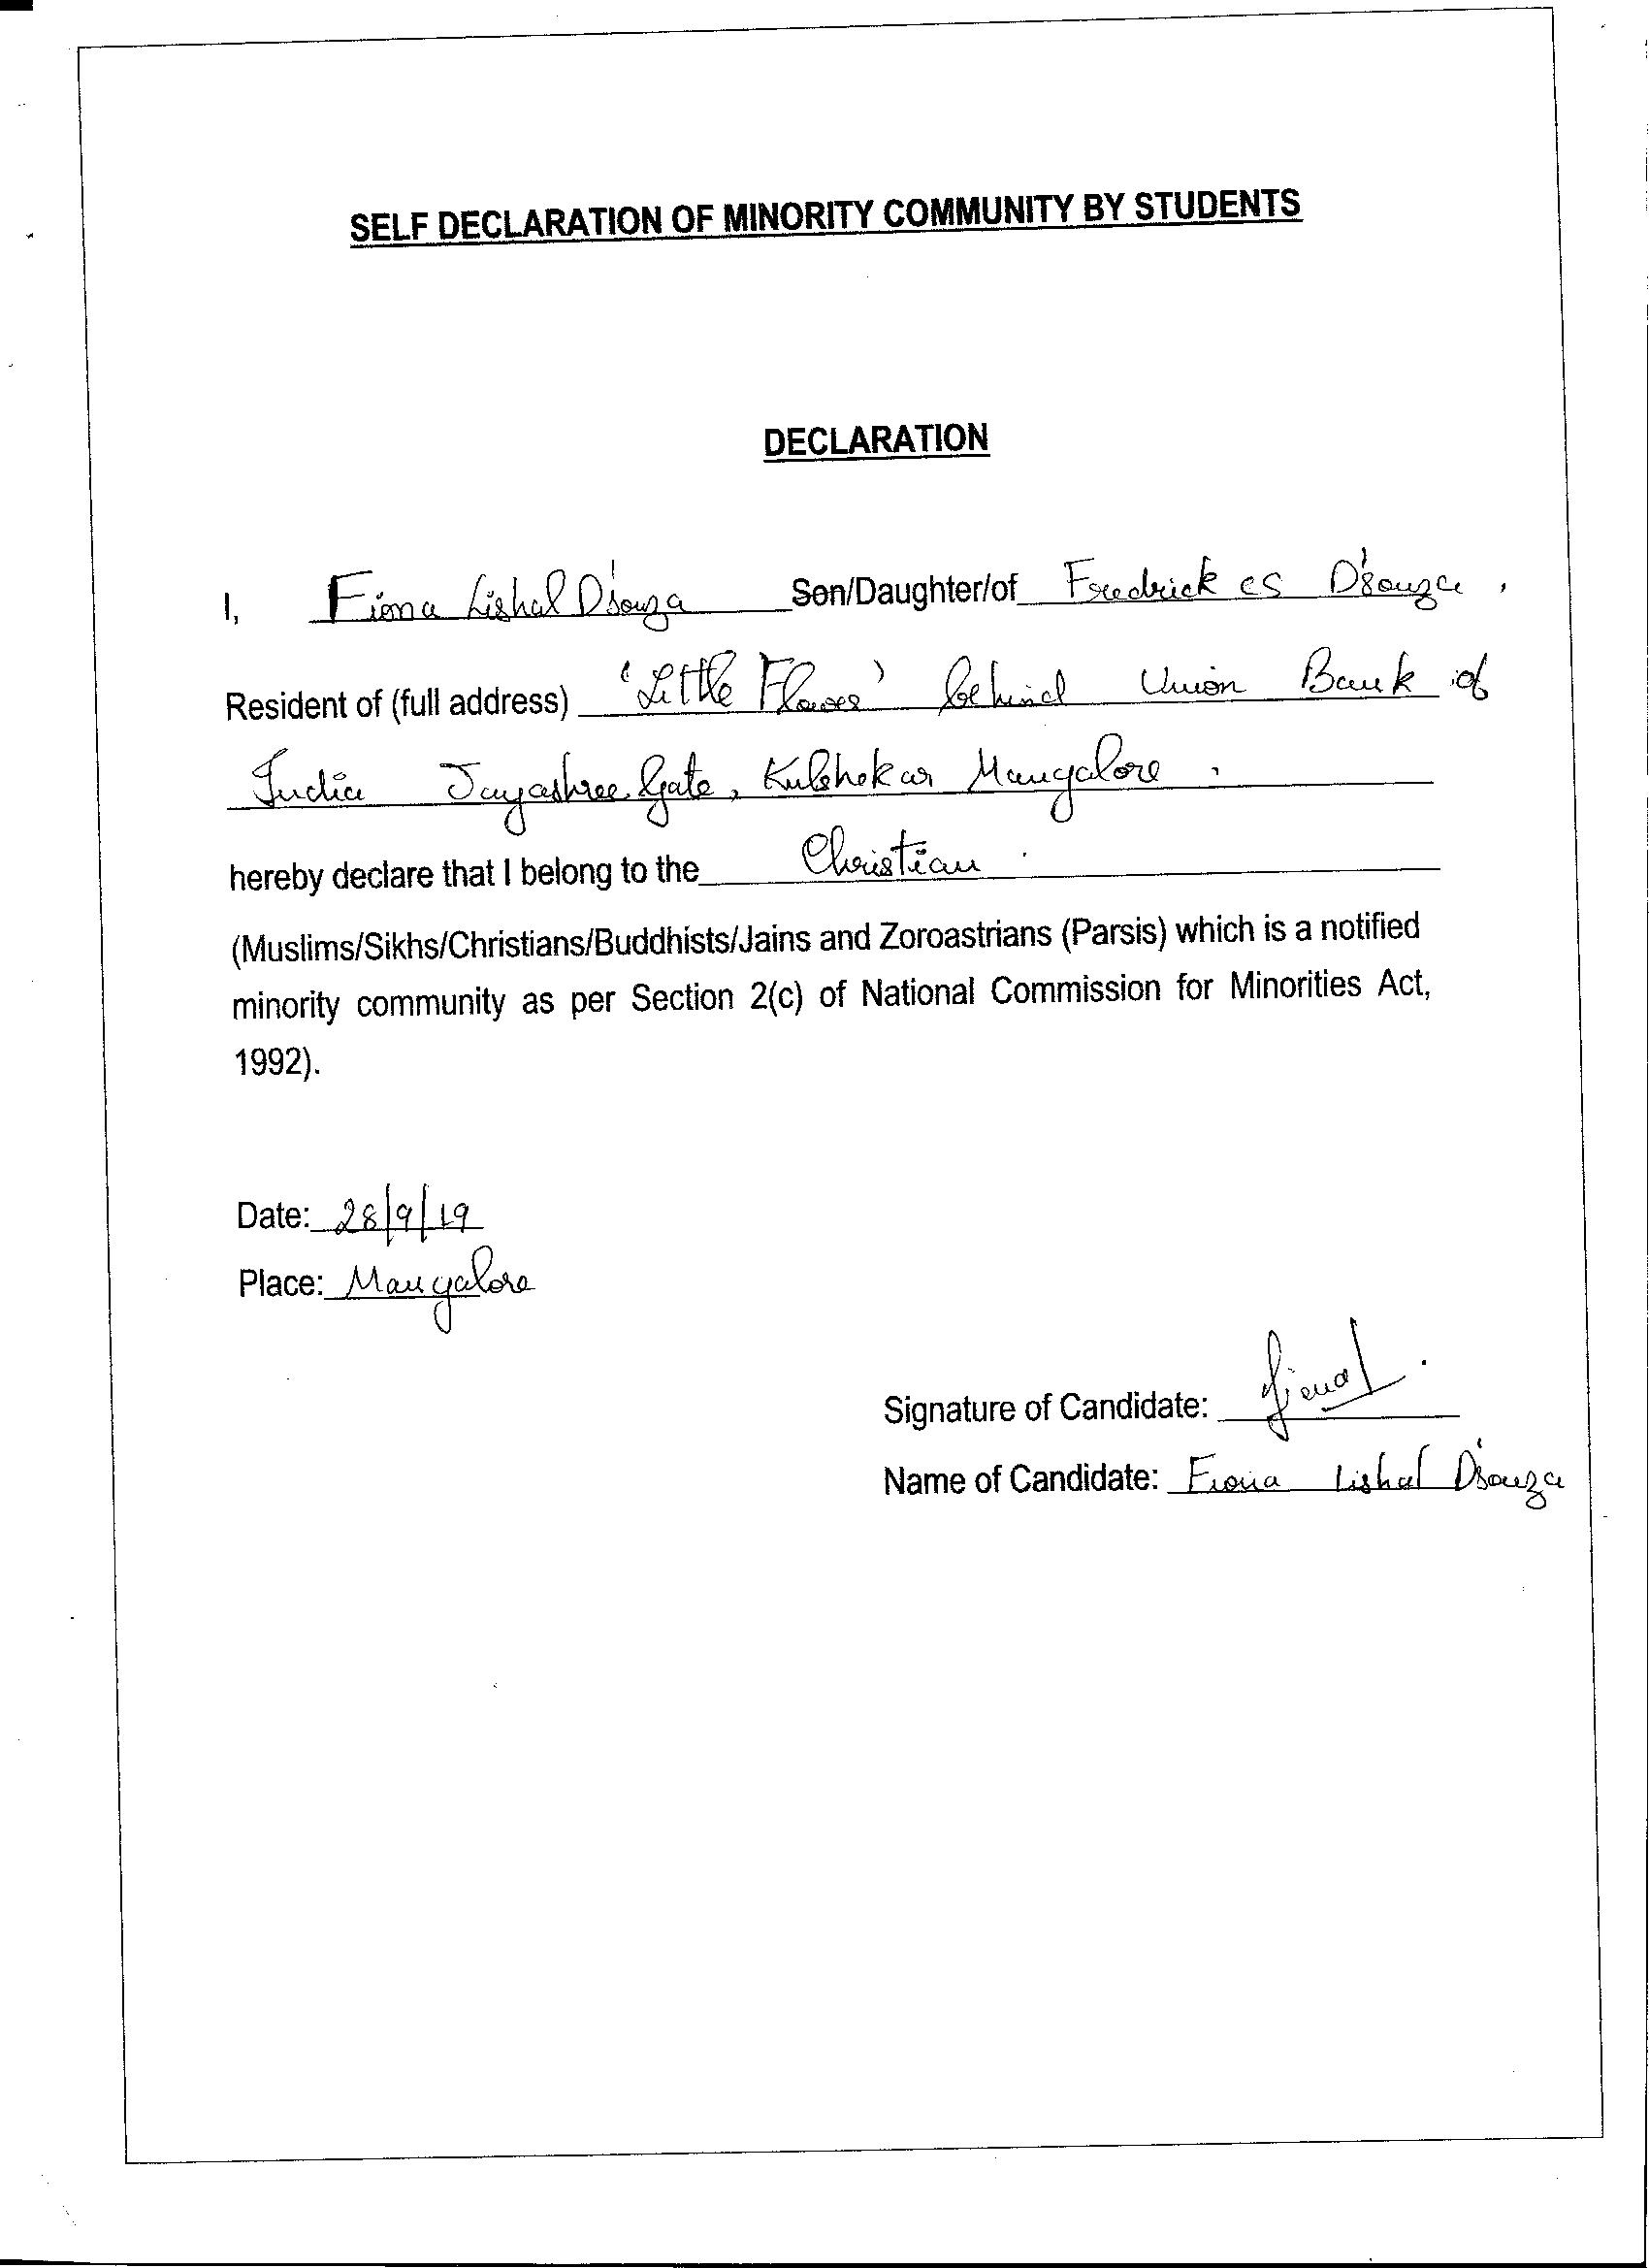 SELF DECLARATION OF MINORITY COMMUNITY BY STUDENTS
DECLARATION
I, Fiona Lishal D'souza Son/Daughter/of Fredrick cs D'souza,
Resident of (full address) 'Little Flower' behind Union Bank of
India Jayashree Gate, Kulshekar Mangalore.
hereby declare that I belong to the Christian.
(Muslims/Sikhs/Christians/Buddhists/Jains and Zoroastrians (Parsis) which is a notified
minority community as per Section 2(c) of National Commission for Minorities Act,
1992).
Date: 28/9/19
Place: Mangalore
Signature of Candidate:
Name of Candidate: Fiona Lishal D'souza